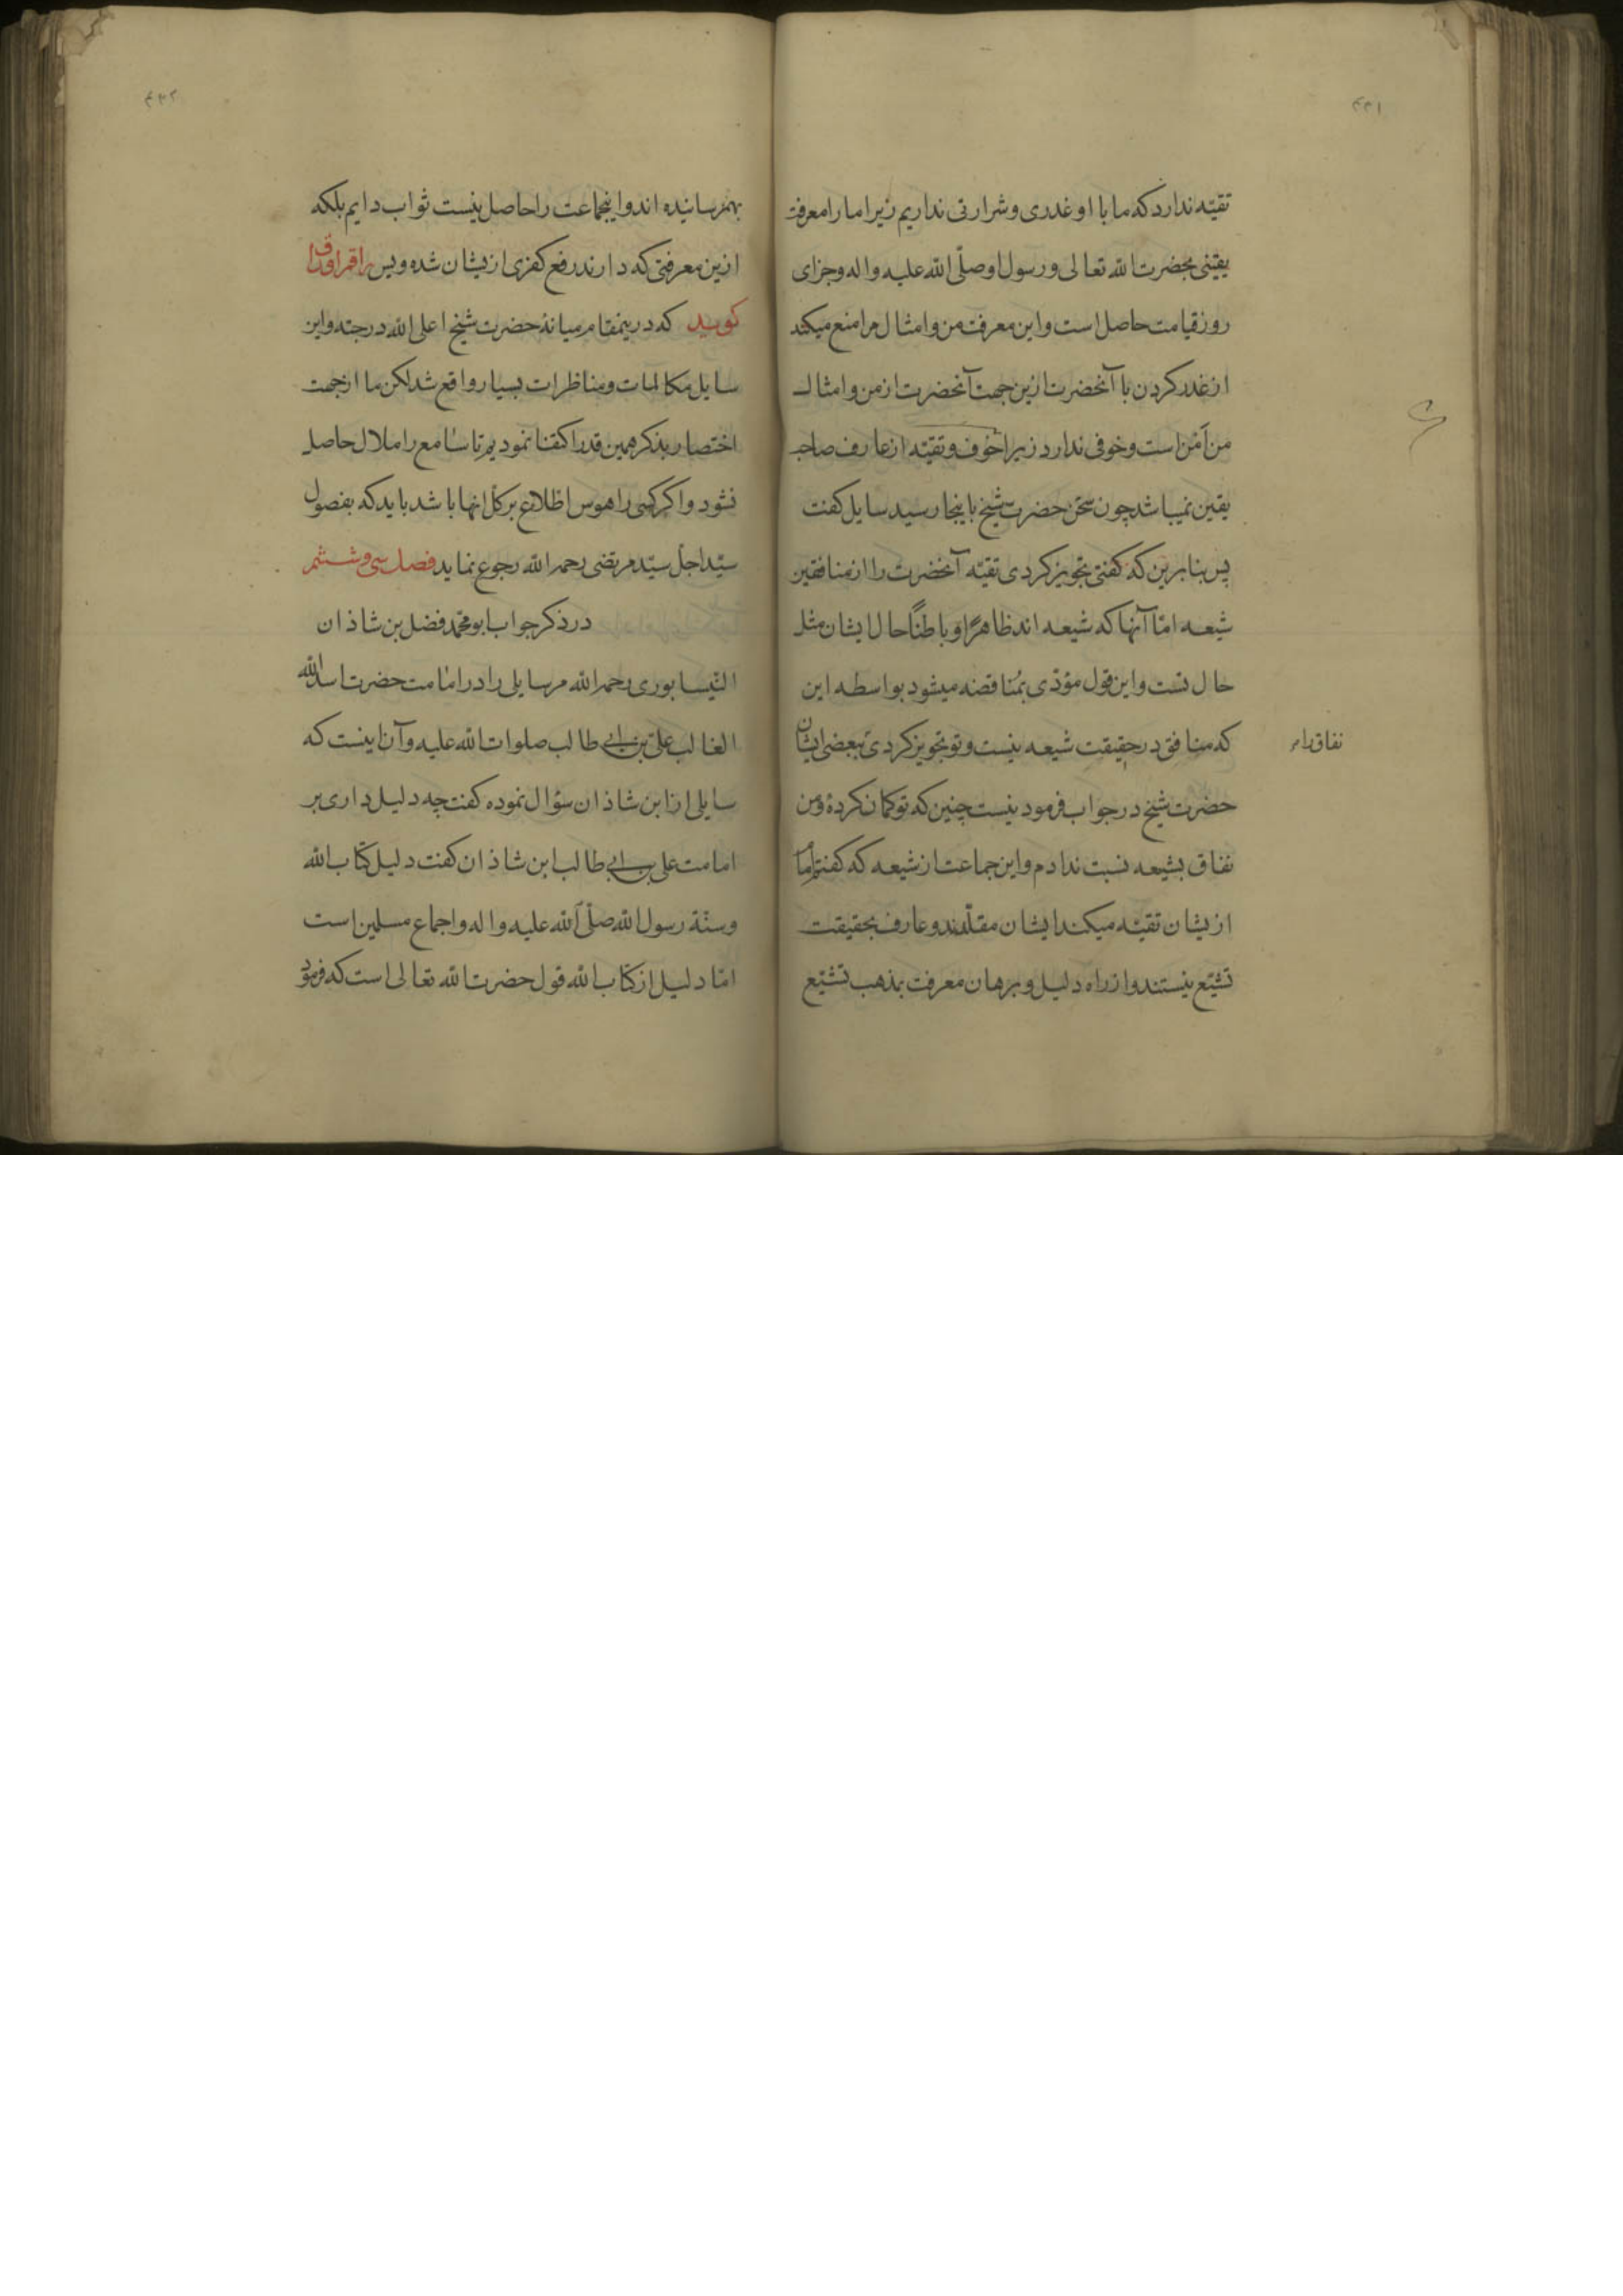 ۴۳۱
تقیّه ندارد که ما با او غدری و شرارتی نداریم زیرا ما را معرفت
یقینی بحضرت الله تعالی و رسول او صلّی الله علیه و اله و جزای
روز قیامت حاصل است و این معرفت من و امثال مرا منع میکند
از غدر کردن با آنحضرت ازین جهت آنحضرت از من و امثال
من آمن است و خوفی ندارد زیرا خوف و تقیّه از عارف صاحب
یقین نمیباشد چون سخن حضرت شیخ باینجا رسید سایل کفت
پس بنابرین که کفتی تجویز کردی تقیّه آنحضرت را از منافقین
شیعه امّا آنها که شیعه اند ظاهرًا و باطنًا حال ایشان مثل
حال تست و این قول مؤدّی بمُناقضه میشود بواسطه این
که منافق در حقیقت شیعه نیست و تو تجویز کردی ببعضی ایشان
نفاق را م
حضرت شیخ در جواب فرمود نیست چنین که تو کمان کردهٔ و من
نفاق بشیعه نسبت ندادم و این جماعت از شیعه که کفتم امام
ازیشان تقیّه میکند ایشان مقلّدند و عارف بحقیقت
تشیّع نیستند و از راه دلیل و برهان معرفت بمذهب تشیّع
۴۳۲
بهم رسانیده اند و اینجماعت را حاصل نیست ثواب دایم بلکه
ازین معرفتی که دارند رفع کفری ازیشان شده و پس راقم اوراق
کوید که درینمقام میانهٔ حضرت شیخ اعلی الله درجته و این
سایل مکالمات و مناظرات بسیار واقع شد لکن ما از جهت
اختصار بذکر همین قدر اکتفا نمودیم تا سامع را ملال حاصل
نشود و اکر کسی را هوس اطلاع بر کلّ انها باشد باید که بفصول
سیّد اجلّ سیّد مرتضی رحمه الله رجوع نماید فصل سی و ششم
در ذکر جواب ابو محمّد فضل بن شاذان
النّیسابوری رحمه الله مر سایلی را در امامت حضرت اسد الله
الغالب علیّ بن ابی طالب صلوات الله علیه و آن اینست که
سایلی از ابن شاذان سؤال نموده کفت چه دلیل داری بر
امامت علی بن ابی طالب ابن شاذان کفت دلیل کتاب الله
و سنّة رسول الله صلّی الله علیه و اله و اجماع مسلمین است
امّا دلیل از کتاب الله قول حضرت الله تعالی است که فرمود